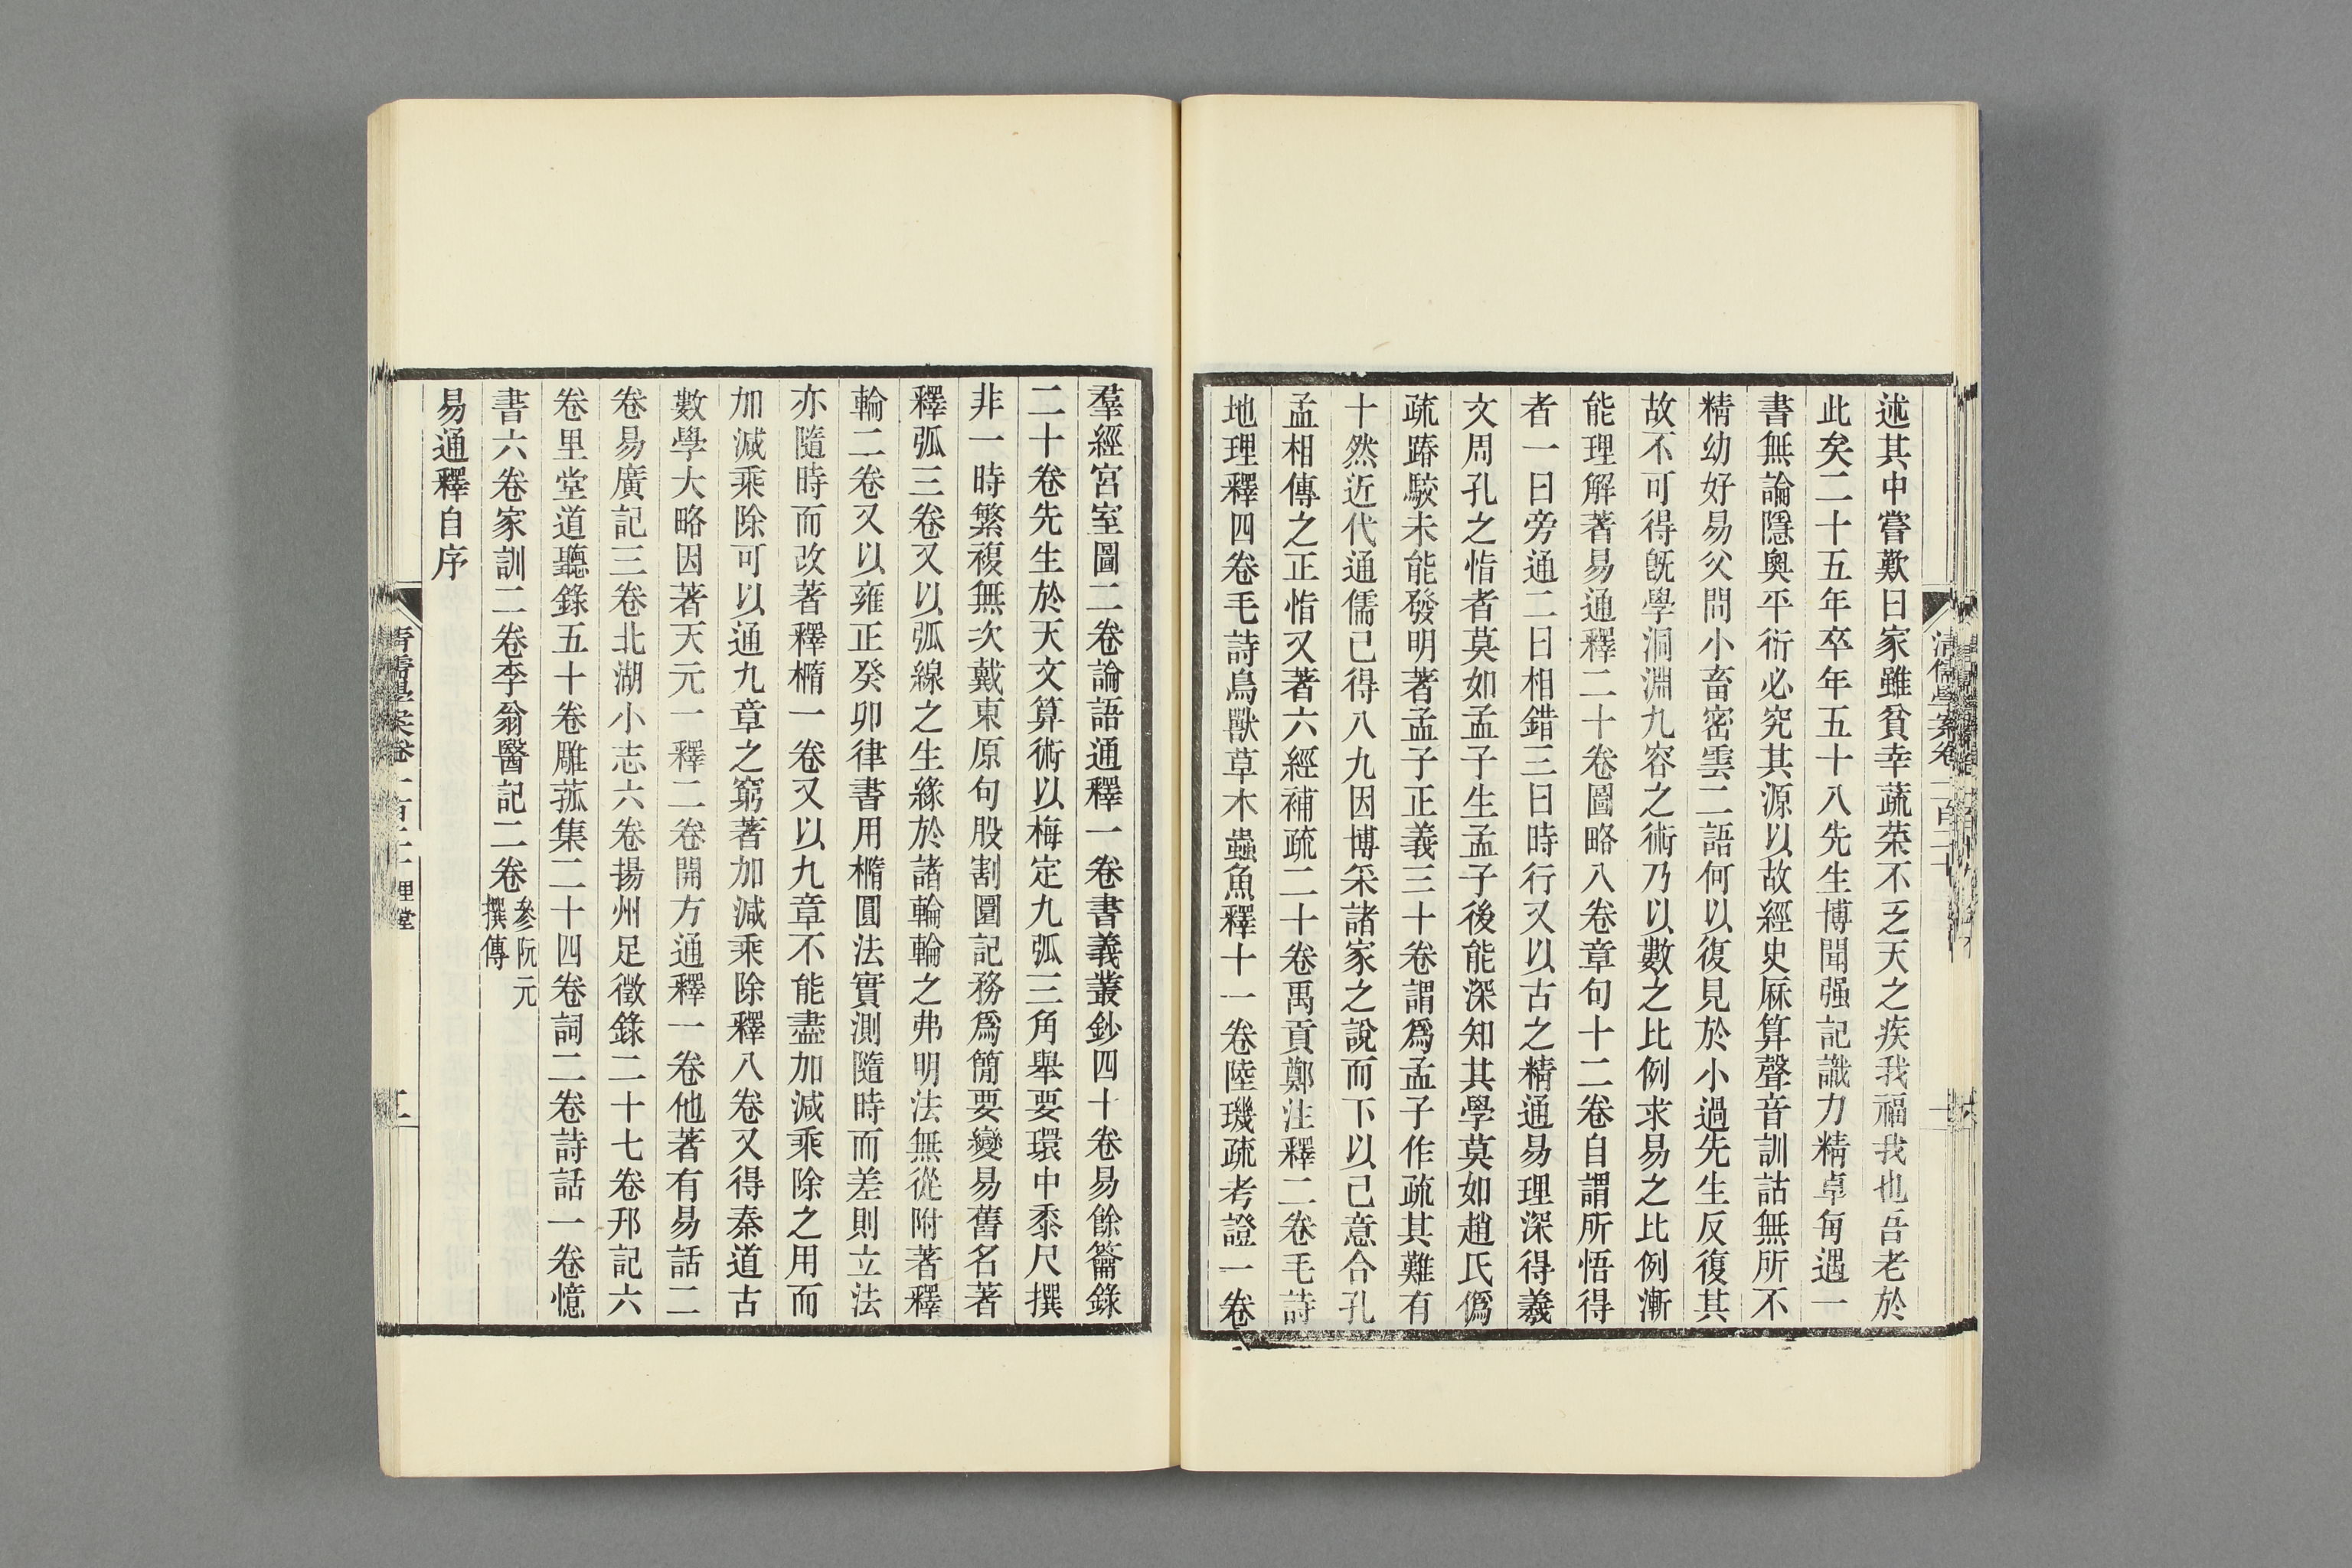 述其中嘗歎曰家雖貧幸蔬菜不乏天之疾我福我也吾老於
此矣二十五年卒年五十八先生博聞强記識力精卓每遇一
書無論隱奧平衍必究其源以故經史厤算聲音訓詁無所不
精幼好易父問小畜密雲二語何以復見於小過先生反復其
故不可得旣學洞淵九容之術乃以數之比例求易之比例漸
能理解著易通釋二十卷圖略八卷章句十二卷自謂所悟得
者一曰旁通二曰相錯三曰時行又以古之精通易理深得羲
文周孔之恉者莫如孟子生孟子後能深知其學莫如趙氏僞
疏踳駮未能發明著孟子正義三十卷謂爲孟子作疏其難有
十然近代通儒已得八九因博采諸家之說而下以己意合孔
孟相傳之正恉又著六經補疏二十卷禹貢鄭注釋二卷毛詩
地理釋四卷毛詩鳥獸草木蟲魚釋十一卷陸璣疏考證一卷
羣經宮室圖二卷論語通釋一卷書義叢鈔四十卷易餘籥錄
二十卷先生於天文算術以梅定九弧三角舉要環中黍尺撰
非一時繁複無次戴東原句股割圜記務爲簡要變易舊名著
釋弧三卷又以弧線之生緣於諸輪輪之弗明法無從附著釋
輪二卷又以雍正癸卯律書用橢圓法實測隨時而差則立法
亦隨時而改著釋橢一卷又以九章不能盡加減乘除之用而
加減乘除可以通九章之窮著加減乘除釋八卷又得秦道古
數學大略因著天元一釋二卷開方通釋一卷他著有易話二
卷易廣記三卷北湖小志六卷揚州足徵錄二十七卷邗記六
卷里堂道聽錄五十卷雕菰集二十四卷詞二卷詩話一卷憶
書六卷家訓二卷李翁醫記二卷參阮元
撰傳
易通釋自序
清儒學案卷一百二十
理堂